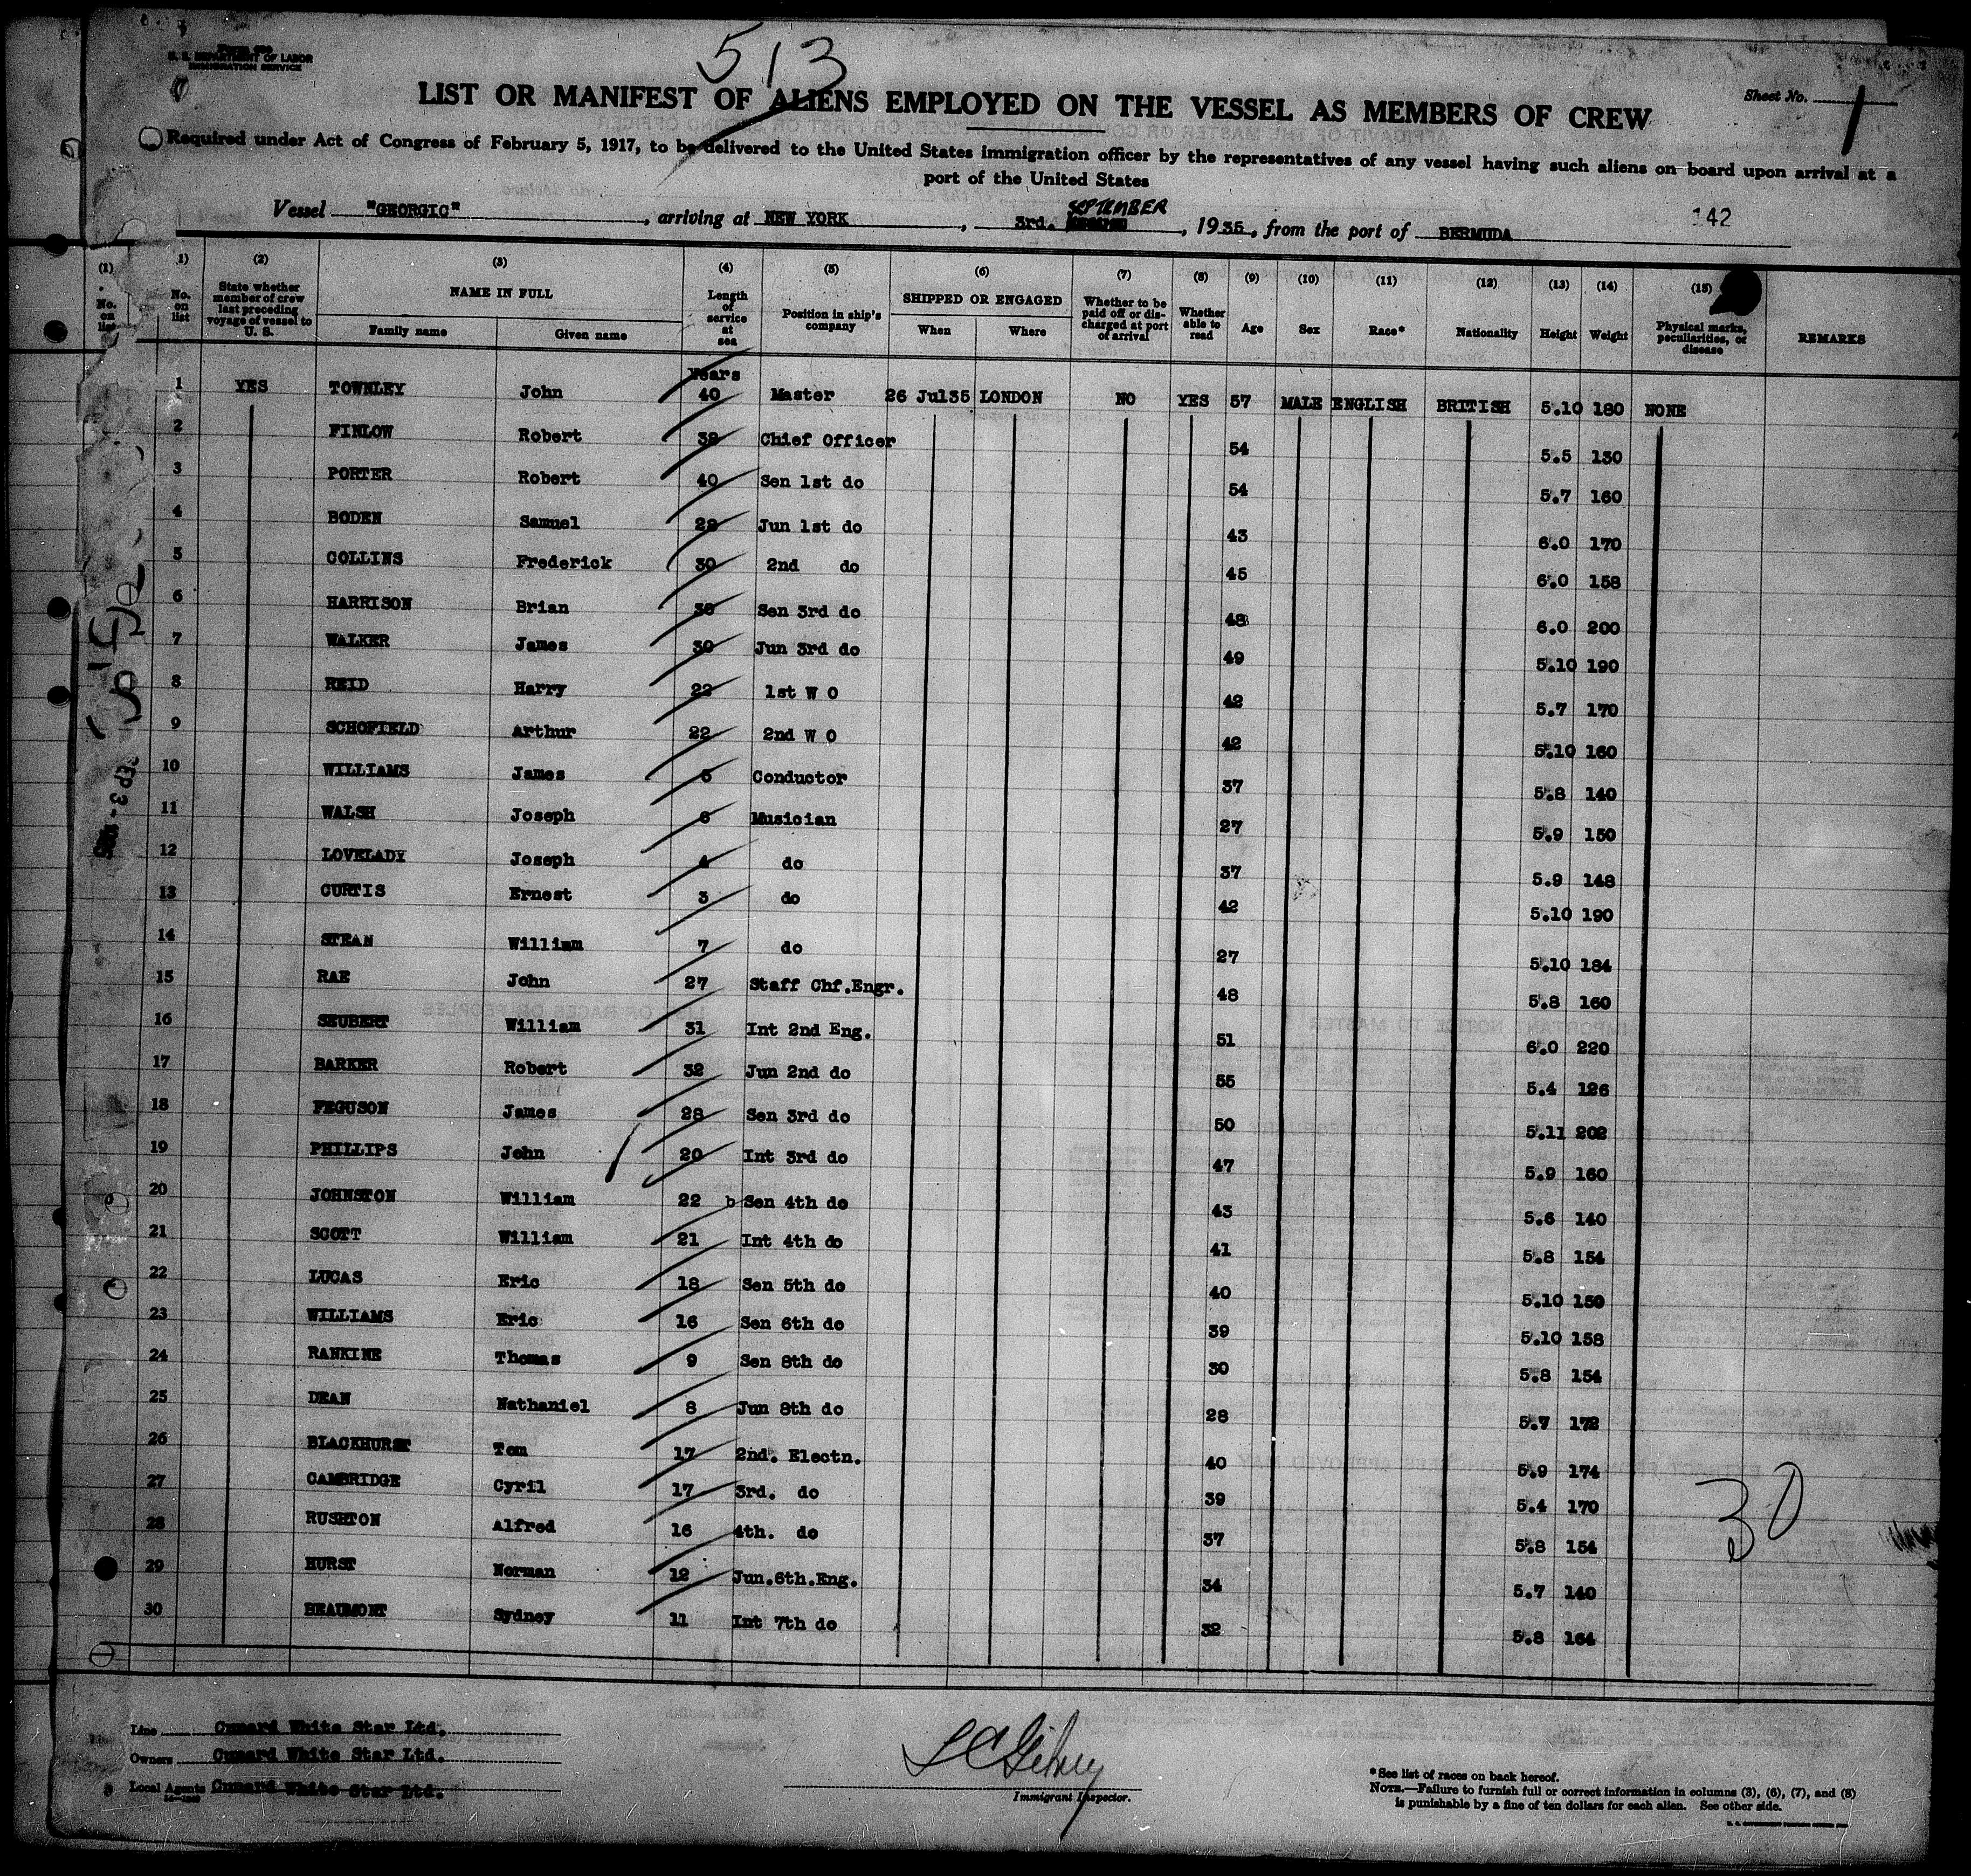 513
Form 680
U. S. DEPARTMENT OF LABOR
IMMIGRATION SERVICE
LIST OR MANIFEST OF ALIENS EMPLOYED ON THE VESSEL AS MEMBERS OF CREW
Sheet No. 1
Required under Act of Congress of February 5, 1917, to be delivered to the United States immigration officer by the representatives of any vessel having such aliens on board upon arrival at a
port of the United States
Vessel "GEORGIC", arriving at NEW YORK, 3rd. SEPTEMBER, 1935, from the port of BERMUDA
142
(1) (1) (2) (3) (4) (5) (6) (7) (8) (9) (10) (11) (12) (13) (14) (15)
No. on list No. on list State whether member of crew last preceding voyage of vessel to U. S. NAME IN FULL Family name Given name Length of service at sea Position in ship's company SHIPPED OR ENGAGED When Where Whether to be paid off or discharged at port of arrival Whether able to read Age Sex Race* Nationality Height Weight Physical marks, peculiarities, or disease REMARKS
Years
1 YES TOWNLEY John 40 Master 26 Jul35 LONDON NO YES 57 MALE ENGLISH BRITISH 5.10 180 NONE
2 FINLOW Robert 39 Chief Officer 54 5.5 130
3 PORTER Robert 40 Sen 1st do 54 5.7 160
4 BODEN Samuel 29 Jun 1st do 43 6.0 170
5 COLLINS Frederick 30 2nd do 45 6.0 158
6 HARRISON Brian 30 Sen 3rd do 48 6.0 200
7 WALKER James 30 Jun 3rd do 49 5.10 190
8 REID Harry 22 1st W O 42 5.7 170
9 SCHOFIELD Arthur 22 2nd W O 42 5.10 160
10 WILLIAMS James 5 Conductor 37 5.8 140
11 WALSH Joseph 6 Musician 27 5.9 150
12 LOVELADY Joseph 4 do 37 5.9 148
13 CURTIS Ernest 3 do 42 5.10 190
14 STEAN William 7 do 27 5.10 184
15 RAE John 27 Staff Chf.Engr. 48 5.8 160
16 SEUBERT William 31 Int 2nd Eng. 51 6.0 220
17 BARKER Robert 32 Jun 2nd do 55 5.4 126
18 FEGUSON James 28 Sen 3rd do 50 5.11 202
19 PHILLIPS John 20 Int 3rd do 47 5.9 160
20 JOHNSTON William 22 b Sen 4th do 43 5.6 140
21 SCOTT William 21 Int 4th do 41 5.8 154
22 LUCAS Eric 18 Sen 5th do 40 5.10 150
23 WILLIAMS Eric 16 Sen 6th do 39 5.10 158
24 RANKINE Thomas 9 Sen 8th do 30 5.8 154
25 DEAN Nathaniel 8 Jun 8th do 28 5.7 172
26 BLACKHURST Tom 17 2nd. Electn. 40 5.9 174
27 CAMBRIDGE Cyril 17 3rd. do 39 5.4 170
28 RUSHTON Alfred 16 4th. do 37 5.8 154
29 HURST Norman 12 Jun.6th.Eng. 34 5.7 140
30 BEAUMONT Sydney 11 Int 7th do 32 5.8 164
30
SEP 3 - 1935
Line Cunard White Star Ltd.
Owners Cunard White Star Ltd.
Local Agents Cunard White Star Ltd.
Immigrant Inspector.
*See list of races on back hereof.
NOTE.—Failure to furnish full or correct information in columns (3), (6), (7), and (8)
is punishable by a fine of ten dollars for each alien. See other side.